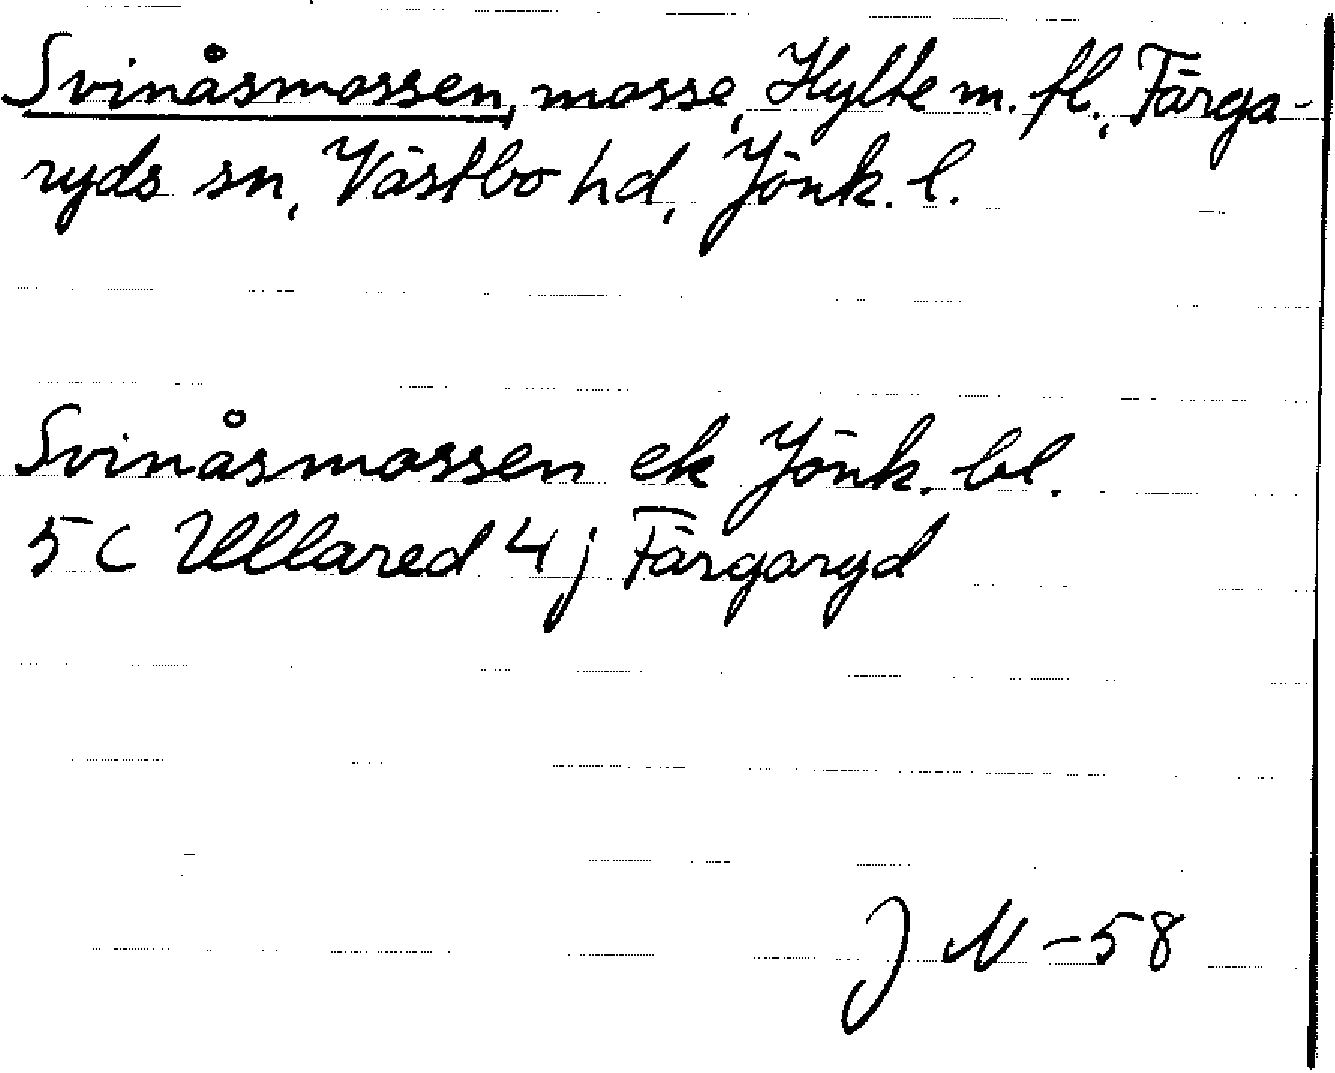 Svinåsmossen, mosse, Hylte m. fl., Färga-
ryds sn, Västbo hd, Jönk. l.
Svinåsmossen ek Jönk. bl.
5 C Ullared 4 j Färgaryd
J N -58